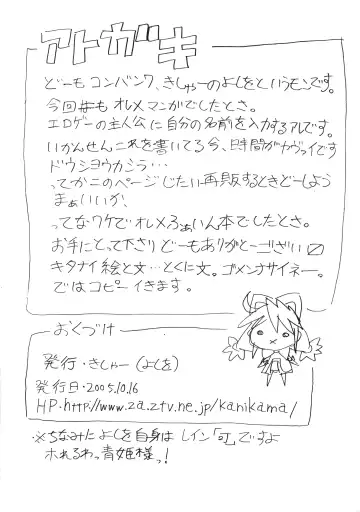 アトガキ
どーもコンバンワ、きしゃーのよしをというモンです。
今回#も オレメ マンガでしたとさ。
エロゲーの主人公に自分の名前を入力するアレです。
いかんせんこれを書いてる今、時間がヤヴァイです
ドウシヨウカシラ…
ってかこのページじたい再販するときどーしよう
まぁいいか、
ってなワケでオレメろぉいん本でしたとさ。
お手にとって下さり どーもありがとーござい〼
キタナイ絵と文…とくに文。ゴメンナサイネー。
ではコピー イきます。
おくづけ
発行・きしゃー(よしを)
発行日・2005.10.16
HP・http://www.za.ztv.ne.jp/kanikama/
※ちなみに よしを自身は レイン「可」ですよ
ホれるわっ青姫様っ!